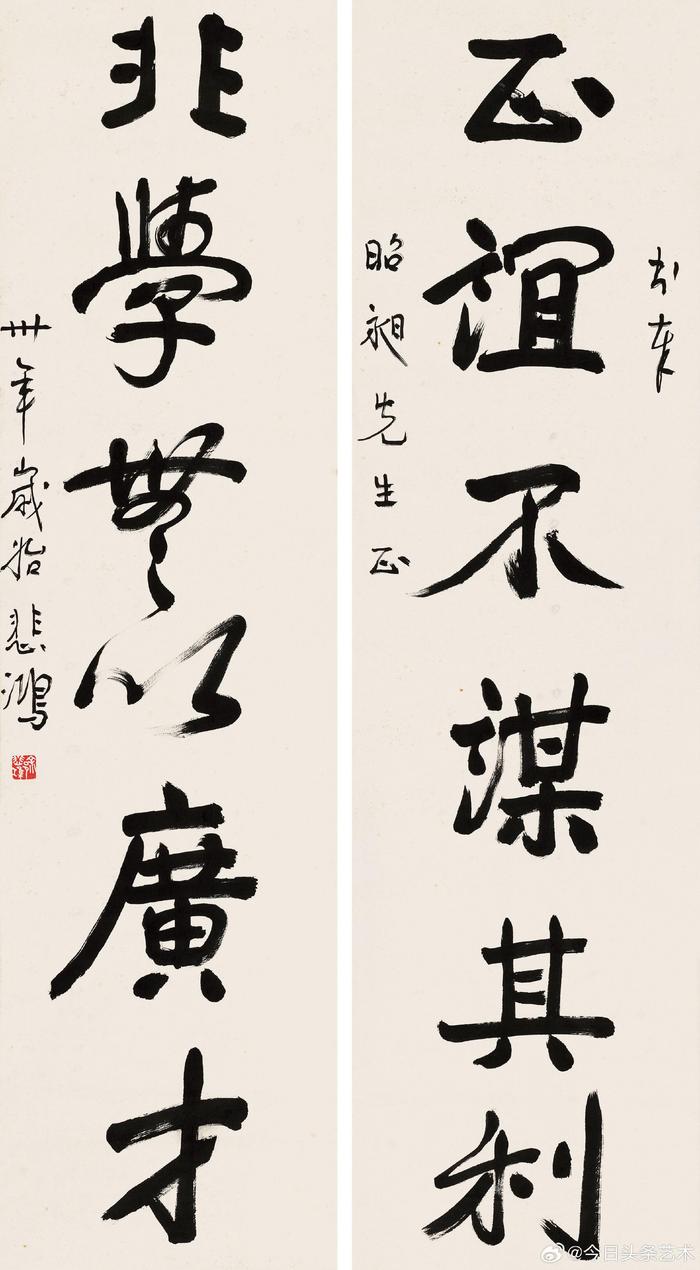 書奉
正誼不謀其利
昭昶先生正
非學無以廣才
卅年歲始 悲鴻
@今日头条艺术